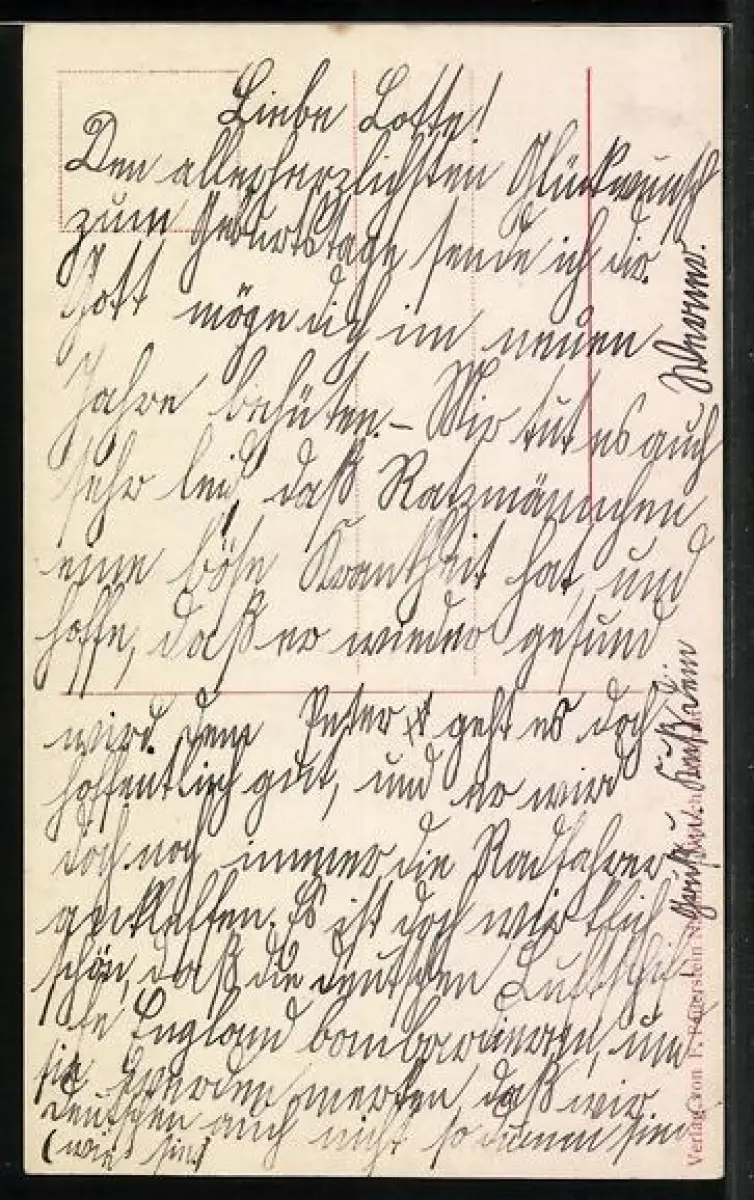 Liebe Lotte!
Den allerherzlichsten Glückwunsch
zum Geburtstage sende ich dir.
Gott möge dich im neuen
Jahre behüten. – Mir tut es auch
sehr leid, daß Ratzmännchen
eine böse Krankheit hat, und
hoffe, daß er wieder gesund
wird. Dem Peter geht es doch
hoffentlich gut, und er wird
doch noch immer die Radfahrer
ankläffen. Es ist doch wirklich
schön, daß die deutschen Luftschif-
fe England bombardieren, und
sie werden merken, daß wir
Deutschen auch nicht so dumm sind
(wie sie)
Gruß u. Kuß dein
Werner.
Verlag von F. Feuerstein